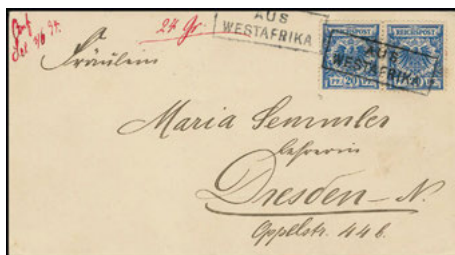 24 Gr.
AUS
WESTAFRIKA
REICHSPOST
REICHSPOST
AUS
WESTAFRIKA
Fräulein
Maria Semmler
Lehrerin
Dresden-N.
Oppelstr. 44b.